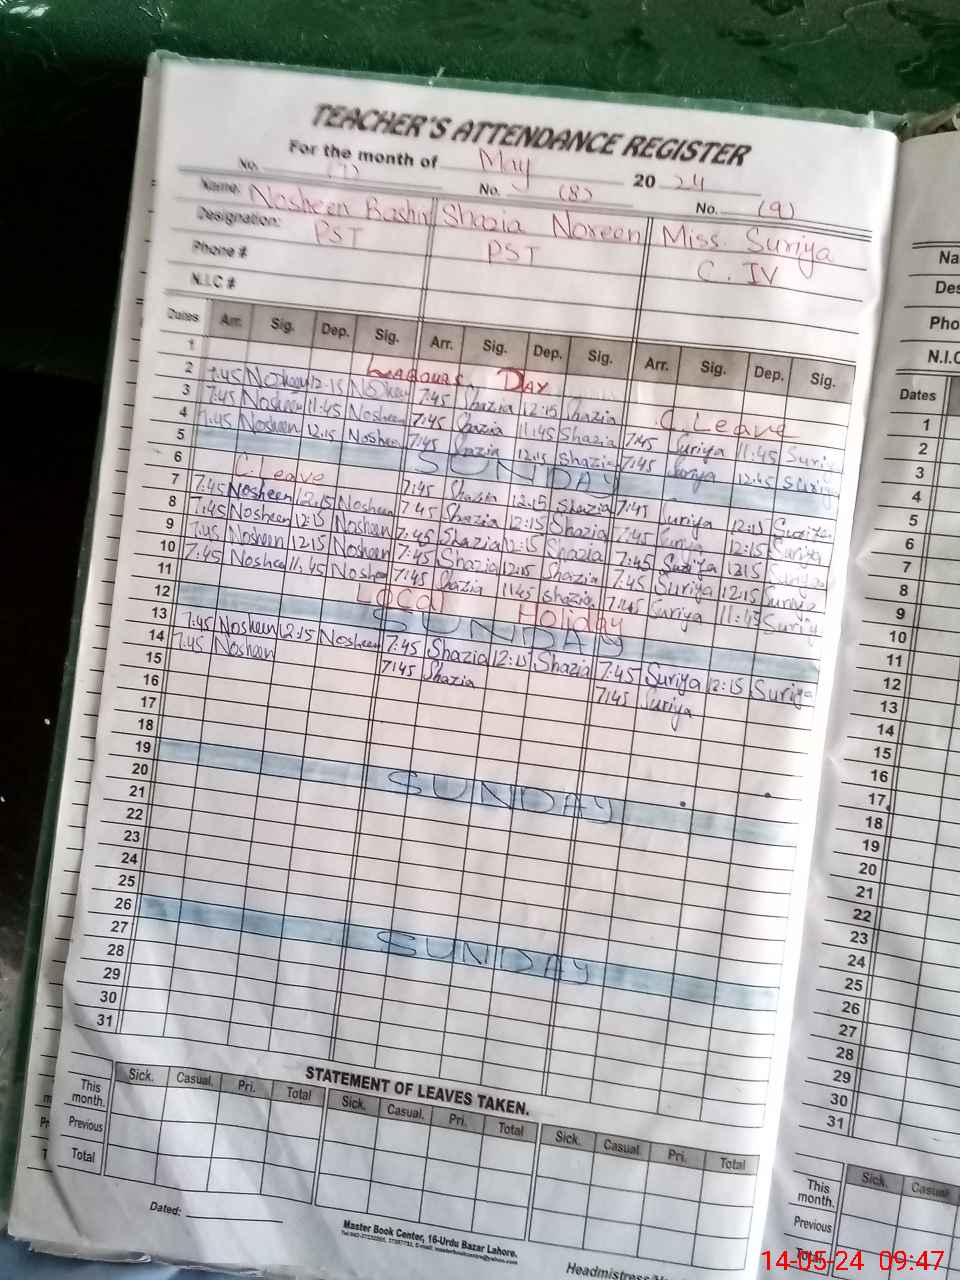 TEACHER'S ATTENDANCE REGISTER
For the month of May 2024
No. (7) No. (8) No. (9)
Name: Nosheen Bashir Shazia Noreen Miss. Suriya
Designation: PST PST C. IV
Phone #
N.I.C #
Dates Arr. Sig. Dep. Sig. Arr. Sig. Dep. Sig. Arr. Sig. Dep. Sig.
1 LABOURS DAY
2 7:45 Nosheen 12:15 Nosheen 7:45 Shazia 12:15 Shazia C. Leave
3 7:45 Nosheen 11:45 Nosheen 7:45 Shazia 11:45 Shazia 7:45 Suriya 11:45 Suriya
4 7:45 Nosheen 12:15 Nosheen 7:45 Shazia 12:15 Shazia 7:45 Suriya 12:45 Suriya
5 SUNDAY
6 C. Leave 7:45 Shazia 12:15 Shazia 7:45 Suriya 12:15 Suriya
7 7:45 Nosheen 12:15 Nosheen 7:45 Shazia 12:15 Shazia 7:45 Suriya 12:15 Suriya
8 7:45 Nosheen 12:15 Nosheen 7:45 Shazia 12:15 Shazia 7:45 Suriya 12:15 Suriya
9 7:45 Nosheen 12:15 Nosheen 7:45 Shazia 12:15 Shazia 7:45 Suriya 12:15 Suriya
10 7:45 Nosheen 11:45 Nosheen 7:45 Shazia 11:45 Shazia 7:45 Suriya 11:45 Suriya
11 Local Holiday
12 SUNDAY
13 7:45 Nosheen 12:15 Nosheen 7:45 Shazia 12:15 Shazia 7:45 Suriya 12:15 Suriya
14 7:45 Nosheen 7:45 Shazia 7:45 Suriya
15
16
17
18
19 SUNDAY
20
21
22
23
24
25
26 SUNDAY
27
28
29
30
31
STATEMENT OF LEAVES TAKEN.
Sick. Casual. Pri. Total Sick. Casual. Pri. Total Sick. Casual. Pri. Total
This month.
Previous
Total
Dated:
Master Book Center, 16-Urdu Bazar Lahore.
Headmistress/
Na
Des
Pho
N.I.C
Dates
1
2
3
4
5
6
7
8
9
10
11
12
13
14
15
16
17
18
19
20
21
22
23
24
25
26
27
28
29
30
31
Sick. Casual
This month.
Previous
Total
14-05-24 09:47